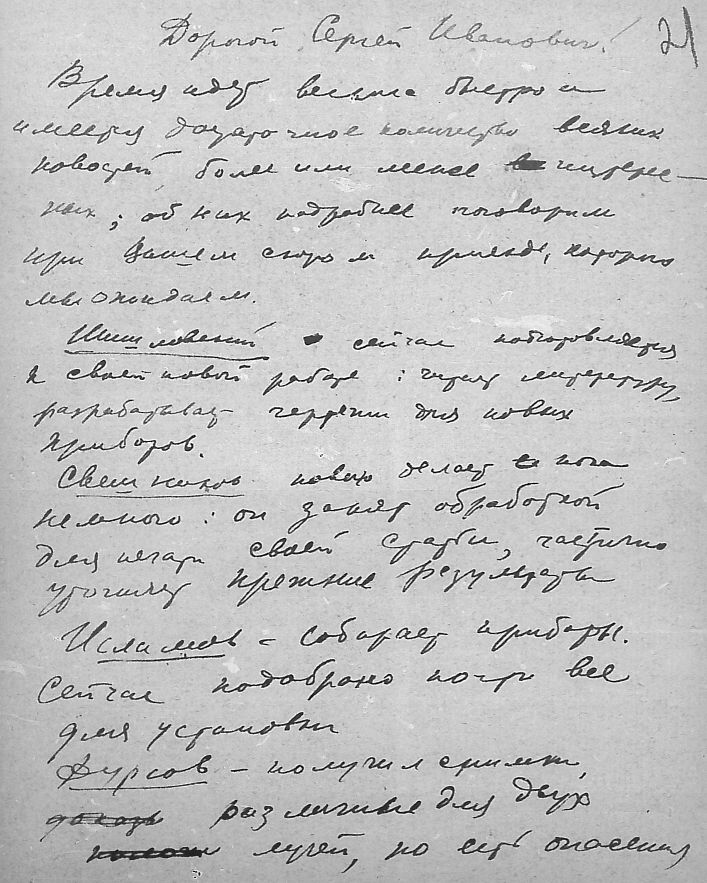 Дорогой Сергей Иванович! 21
Время идет весьма быстро и
имеется достаточное количество всяких
новостей более или менее интерес–
ных; об них подробнее поговорим
при Вашем скором приезде, которого
мы ожидаем.
Шишловский сейчас подготовляется
к своей новой работе: читает литературу,
разрабатывает чертежи для новых
приборов.
Свешников нового делает пока
немного: он занят обработкой
для печати своей статьи, частично
уточняет прежние результаты
Исламов – собирает приборы.
Сейчас подобрано почти все
для установки
Фурсов – получил снимки,
различные для двух
лучей, но есть опасения